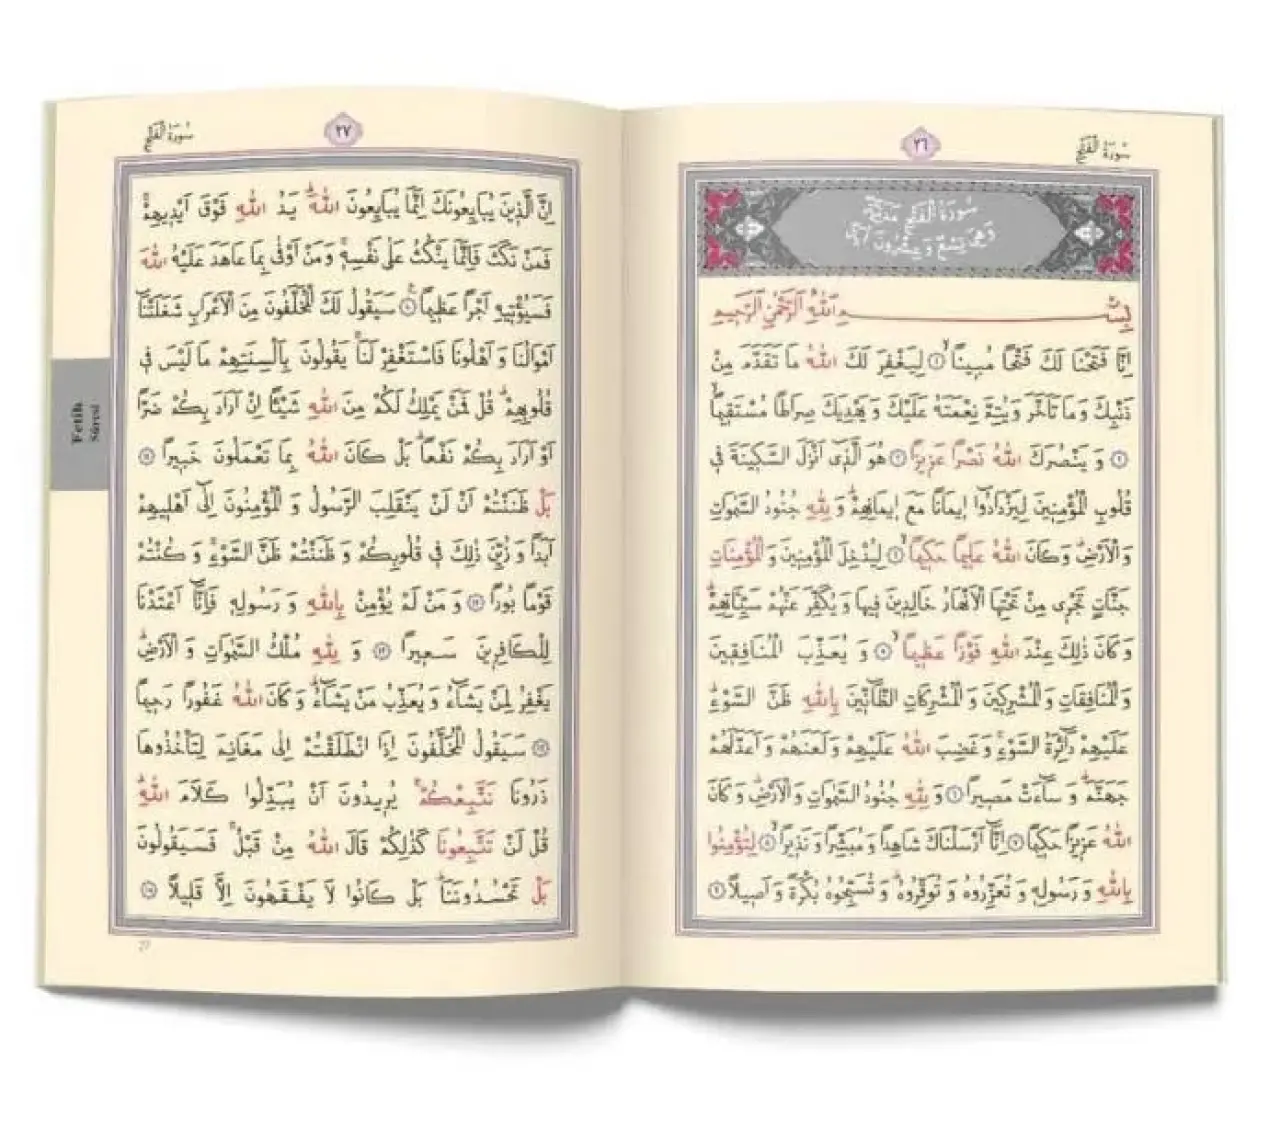 سُورَةُ الْفَتْحِ
٢٦
سُورَةُ الْفَتْحِ مَدَنِيَّةٌ
وَهِيَ تِسْعٌ وَعِشْرُونَ آيَةً
بِسْمِ اللّٰهِ الرَّحْمٰنِ الرَّحِيمِ
اِنَّا فَتَحْنَا لَكَ فَتْحًا مُبِينًا ﴿١﴾ لِيَغْفِرَ لَكَ اللّٰهُ مَا تَقَدَّمَ مِنْ
ذَنْبِكَ وَمَا تَاَخَّرَ وَيُتِمَّ نِعْمَتَهُ عَلَيْكَ وَيَهْدِيَكَ صِرَاطًا مُسْتَقِيمًا
﴿٢﴾ وَيَنْصُرَكَ اللّٰهُ نَصْرًا عَزِيزًا ﴿٣﴾ هُوَ الَّذِى اَنْزَلَ السَّكِينَةَ فِى
قُلُوبِ الْمُؤْمِنِينَ لِيَزْدَادُوا اِيمَانًا مَعَ اِيمَانِهِمْ وَلِلّٰهِ جُنُودُ السَّمٰوَاتِ
وَالْاَرْضِ وَكَانَ اللّٰهُ عَلِيمًا حَكِيمًا ﴿٤﴾ لِيُدْخِلَ الْمُؤْمِنِينَ وَالْمُؤْمِنَاتِ
جَنَّاتٍ تَجْرِى مِنْ تَحْتِهَا الْاَنْهَارُ خَالِدِينَ فِيهَا وَيُكَفِّرَ عَنْهُمْ سَيِّئَاتِهِمْ
وَكَانَ ذٰلِكَ عِنْدَ اللّٰهِ فَوْزًا عَظِيمًا ﴿٥﴾ وَيُعَذِّبَ الْمُنَافِقِينَ
وَالْمُنَافِقَاتِ وَالْمُشْرِكِينَ وَالْمُشْرِكَاتِ الظَّٓانِّينَ بِاللّٰهِ ظَنَّ السَّوْءِ
عَلَيْهِمْ دَٓائِرَةُ السَّوْءِ وَغَضِبَ اللّٰهُ عَلَيْهِمْ وَلَعَنَهُمْ وَاَعَدَّ لَهُمْ
جَهَنَّمَ وَسَٓاءَتْ مَصِيرًا ﴿٦﴾ وَلِلّٰهِ جُنُودُ السَّمٰوَاتِ وَالْاَرْضِ وَكَانَ
اللّٰهُ عَزِيزًا حَكِيمًا ﴿٧﴾ اِنَّٓا اَرْسَلْنَاكَ شَاهِدًا وَمُبَشِّرًا وَنَذِيرًا ﴿٨﴾ لِتُؤْمِنُوا
بِاللّٰهِ وَرَسُولِهِ وَتُعَزِّرُوهُ وَتُوَقِّرُوهُ وَتُسَبِّحُوهُ بُكْرَةً وَاَصِيلًا ﴿٩﴾
سُورَةُ الْفَتْحِ
٢٧
اِنَّ الَّذِينَ يُبَايِعُونَكَ اِنَّمَا يُبَايِعُونَ اللّٰهَ يَدُ اللّٰهِ فَوْقَ اَيْدِيهِمْ
فَمَنْ نَكَثَ فَاِنَّمَا يَنْكُثُ عَلٰى نَفْسِهِ وَمَنْ اَوْفٰى بِمَا عَاهَدَ عَلَيْهُ اللّٰهَ
فَسَيُؤْتِيهِ اَجْرًا عَظِيمًا ﴿١٠﴾ سَيَقُولُ لَكَ الْمُخَلَّفُونَ مِنَ الْاَعْرَابِ شَغَلَتْنَٓا
اَمْوَالُنَا وَاَهْلُونَا فَاسْتَغْفِرْ لَنَا يَقُولُونَ بِاَلْسِنَتِهِمْ مَا لَيْسَ فِى
قُلُوبِهِمْ قُلْ فَمَنْ يَمْلِكُ لَكُمْ مِنَ اللّٰهِ شَيْئًا اِنْ اَرَادَ بِكُمْ ضَرًّا
اَوْ اَرَادَ بِكُمْ نَفْعًا بَلْ كَانَ اللّٰهُ بِمَا تَعْمَلُونَ خَبِيرًا ﴿١١﴾
بَلْ ظَنَنْتُمْ اَنْ لَنْ يَنْقَلِبَ الرَّسُولُ وَالْمُؤْمِنُونَ اِلٰٓى اَهْلِيهِمْ
اَبَدًا وَزُيِّنَ ذٰلِكَ فِى قُلُوبِكُمْ وَظَنَنْتُمْ ظَنَّ السَّوْءِ وَكُنْتُمْ
قَوْمًا بُورًا ﴿١٢﴾ وَمَنْ لَمْ يُؤْمِنْ بِاللّٰهِ وَرَسُولِهِ فَاِنَّٓا اَعْتَدْنَا
لِلْكَافِرِينَ سَعِيرًا ﴿١٣﴾ وَلِلّٰهِ مُلْكُ السَّمٰوَاتِ وَالْاَرْضِ
يَغْفِرُ لِمَنْ يَشَٓاءُ وَيُعَذِّبُ مَنْ يَشَٓاءُ وَكَانَ اللّٰهُ غَفُورًا رَحِيمًا
﴿١٤﴾ سَيَقُولُ الْمُخَلَّفُونَ اِذَا انْطَلَقْتُمْ اِلٰى مَغَانِمَ لِتَأْخُذُوهَا
ذَرُونَا نَتَّبِعْكُمْ يُرِيدُونَ اَنْ يُبَدِّلُوا كَلَامَ اللّٰهِ
قُلْ لَنْ تَتَّبِعُونَا كَذٰلِكُمْ قَالَ اللّٰهُ مِنْ قَبْلُ فَسَيَقُولُونَ
بَلْ تَحْسُدُونَنَا بَلْ كَانُوا لَا يَفْقَهُونَ اِلَّا قَلِيلًا ﴿١٥﴾
Fetih
Sûresi
27